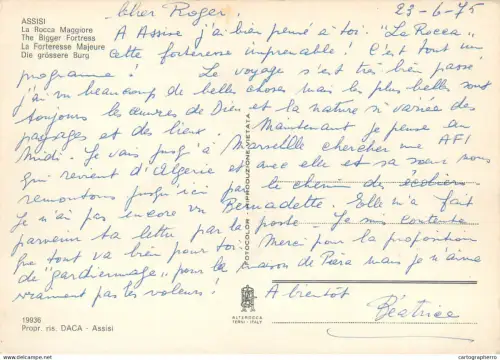 ASSISI
La Rocca Maggiore
The Bigger Fortress
La Forteresse Majeure
Die grössere Burg
23-6-75
Cher Roger.
A Assise j'ai bien pensé à toi. "La Rocca"
cette forteresse imprenable! C'est tout un
programme! Le voyage s'est très bien passé
j'ai vu beaucoup de belles choses mais les plus belles sont
toujours les œuvres de Dieu et la nature si variée des
paysages et des lieux. Maintenant je pense au
Midi. Je vais jusqu'à Marseille chercher une AFI
qui revient d'Algérie et avec elle et sa sœur nous
remontons jusqu'ici par le chemin des écoliers
Je n'ai pas encore vu Bernadette. Elle m'a fait
parvenir ta lettre par la poste - Je suis contente
que tout va bien pour toi. Merci pour la proposition
de "gardiennage" pour la maison de mais je n'aime
vraiment pas les voleurs!
A bientôt
Béatrice
FOTOCOLOR - RIPRODUZIONE VIETATA
ALTEROCCA
TERNI - ITALY
19936
Propr. ris. DACA - Assisi
cartaphilepro